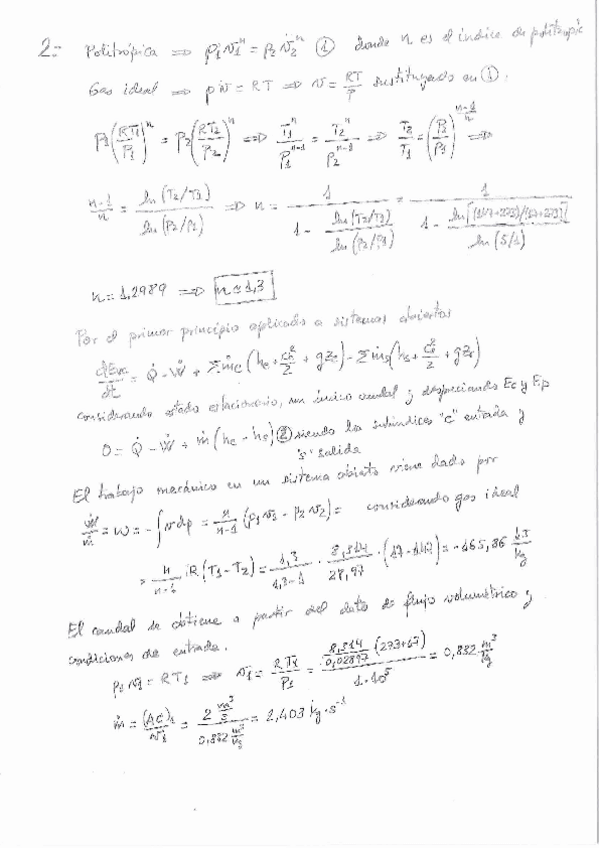 2:- Politrópica ⇒ p₁v₁ⁿ = p₂v₂ⁿ ① donde n es el índice de politropic
Gas ideal ⇒ pv = RT ⇒ v = RT/p sustituyendo en ①.
p₁(RT₁/p₁)ⁿ = p₂(RT₂/p₂)ⁿ ⇒ T₁ⁿ/p₁ⁿ⁻¹ = T₂ⁿ/p₂ⁿ⁻¹ ⇒ T₂/T₁ = (p₂/p₁)^((n-1)/n) ⇒
(n-1)/n = ln(T₂/T₁)/ln(p₂/p₁) ⇒ n = 1/(1 - ln(T₂/T₁)/ln(p₂/p₁)) = 1/(1 - ln[(147+273)/(17+273)]/ln(5/1))
n = 1,2989 ⇒ n ≃ 1,3
Por el primer principio aplicado a sistemas abiertos
dEvc/dt = Q̇ - Ẇ + Σṁe(he + ce²/2 + gze) - Σṁs(hs + cs²/2 + gzs)
considerando estado estacionario, un único caudal y despreciando Ec y Ep
0 = Q̇ - Ẇ + ṁ(he - hs) ② siendo los subíndices "e" entrada y
"s" salida
El trabajo mecánico en un sistema abierto viene dado por
Ẇ/ṁ = w = -∫vdp = n/(n-1) (p₁v₁ - p₂v₂) = considerando gas ideal
= n/(n-1) R(T₁ - T₂) = 1,3/(1,3-1) · 8,314/28,97 · (17-147) = -165,86 kJ/kg
El caudal se obtiene a partir del dato de flujo volumétrico y
condiciones de entrada.
p₁v₁ = RT₁ ⇒ v₁ = RT₁/p₁ = (8,314/0,02897 (273+17))/(1·10⁵) = 0,832 m³/kg
ṁ = (AC)₁/v₁ = (2 m³/s)/(0,832 m³/kg) = 2,403 kg·s⁻¹